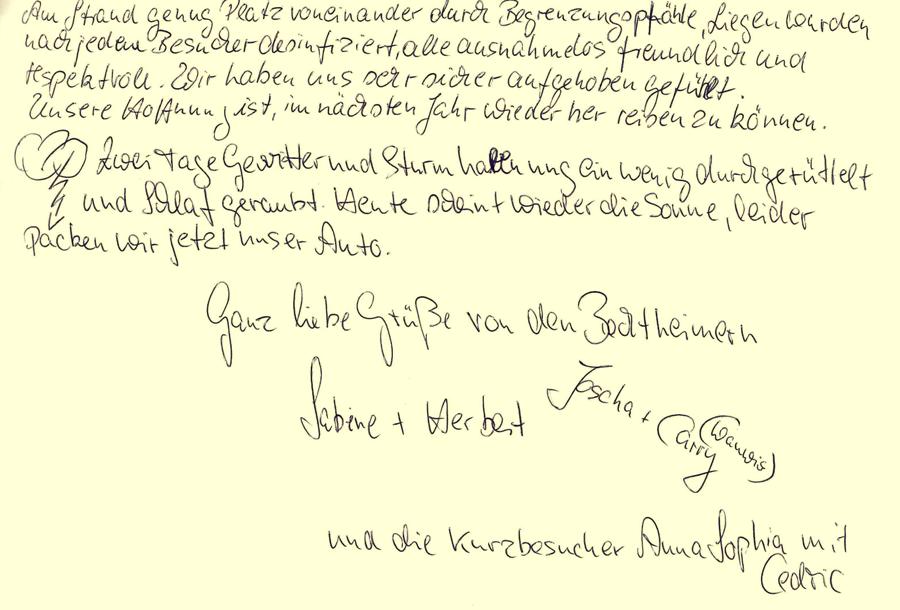 Am Strand genug Platz voneinander durch Begrenzungspfähle, Liegen wurden
nach jedem Besucher desinfiziert, alle ausnahmslos freundlich und
respektvoll. Wir haben uns sehr sicher aufgehoben gefühlt.
Unsere Hoffnung ist, im nächsten Jahr wieder her reisen zu können.
Zwei Tage Gewitter und Sturm haben uns ein wenig durchgerüttelt
und Schlaf geraubt. Heute scheint wieder die Sonne, leider
packen wir jetzt unser Auto.
Ganz liebe Grüße von den
Sabine + Herbert Joscha + Carry
und die Kurzbesucher AnnaSophia mit
Cedric